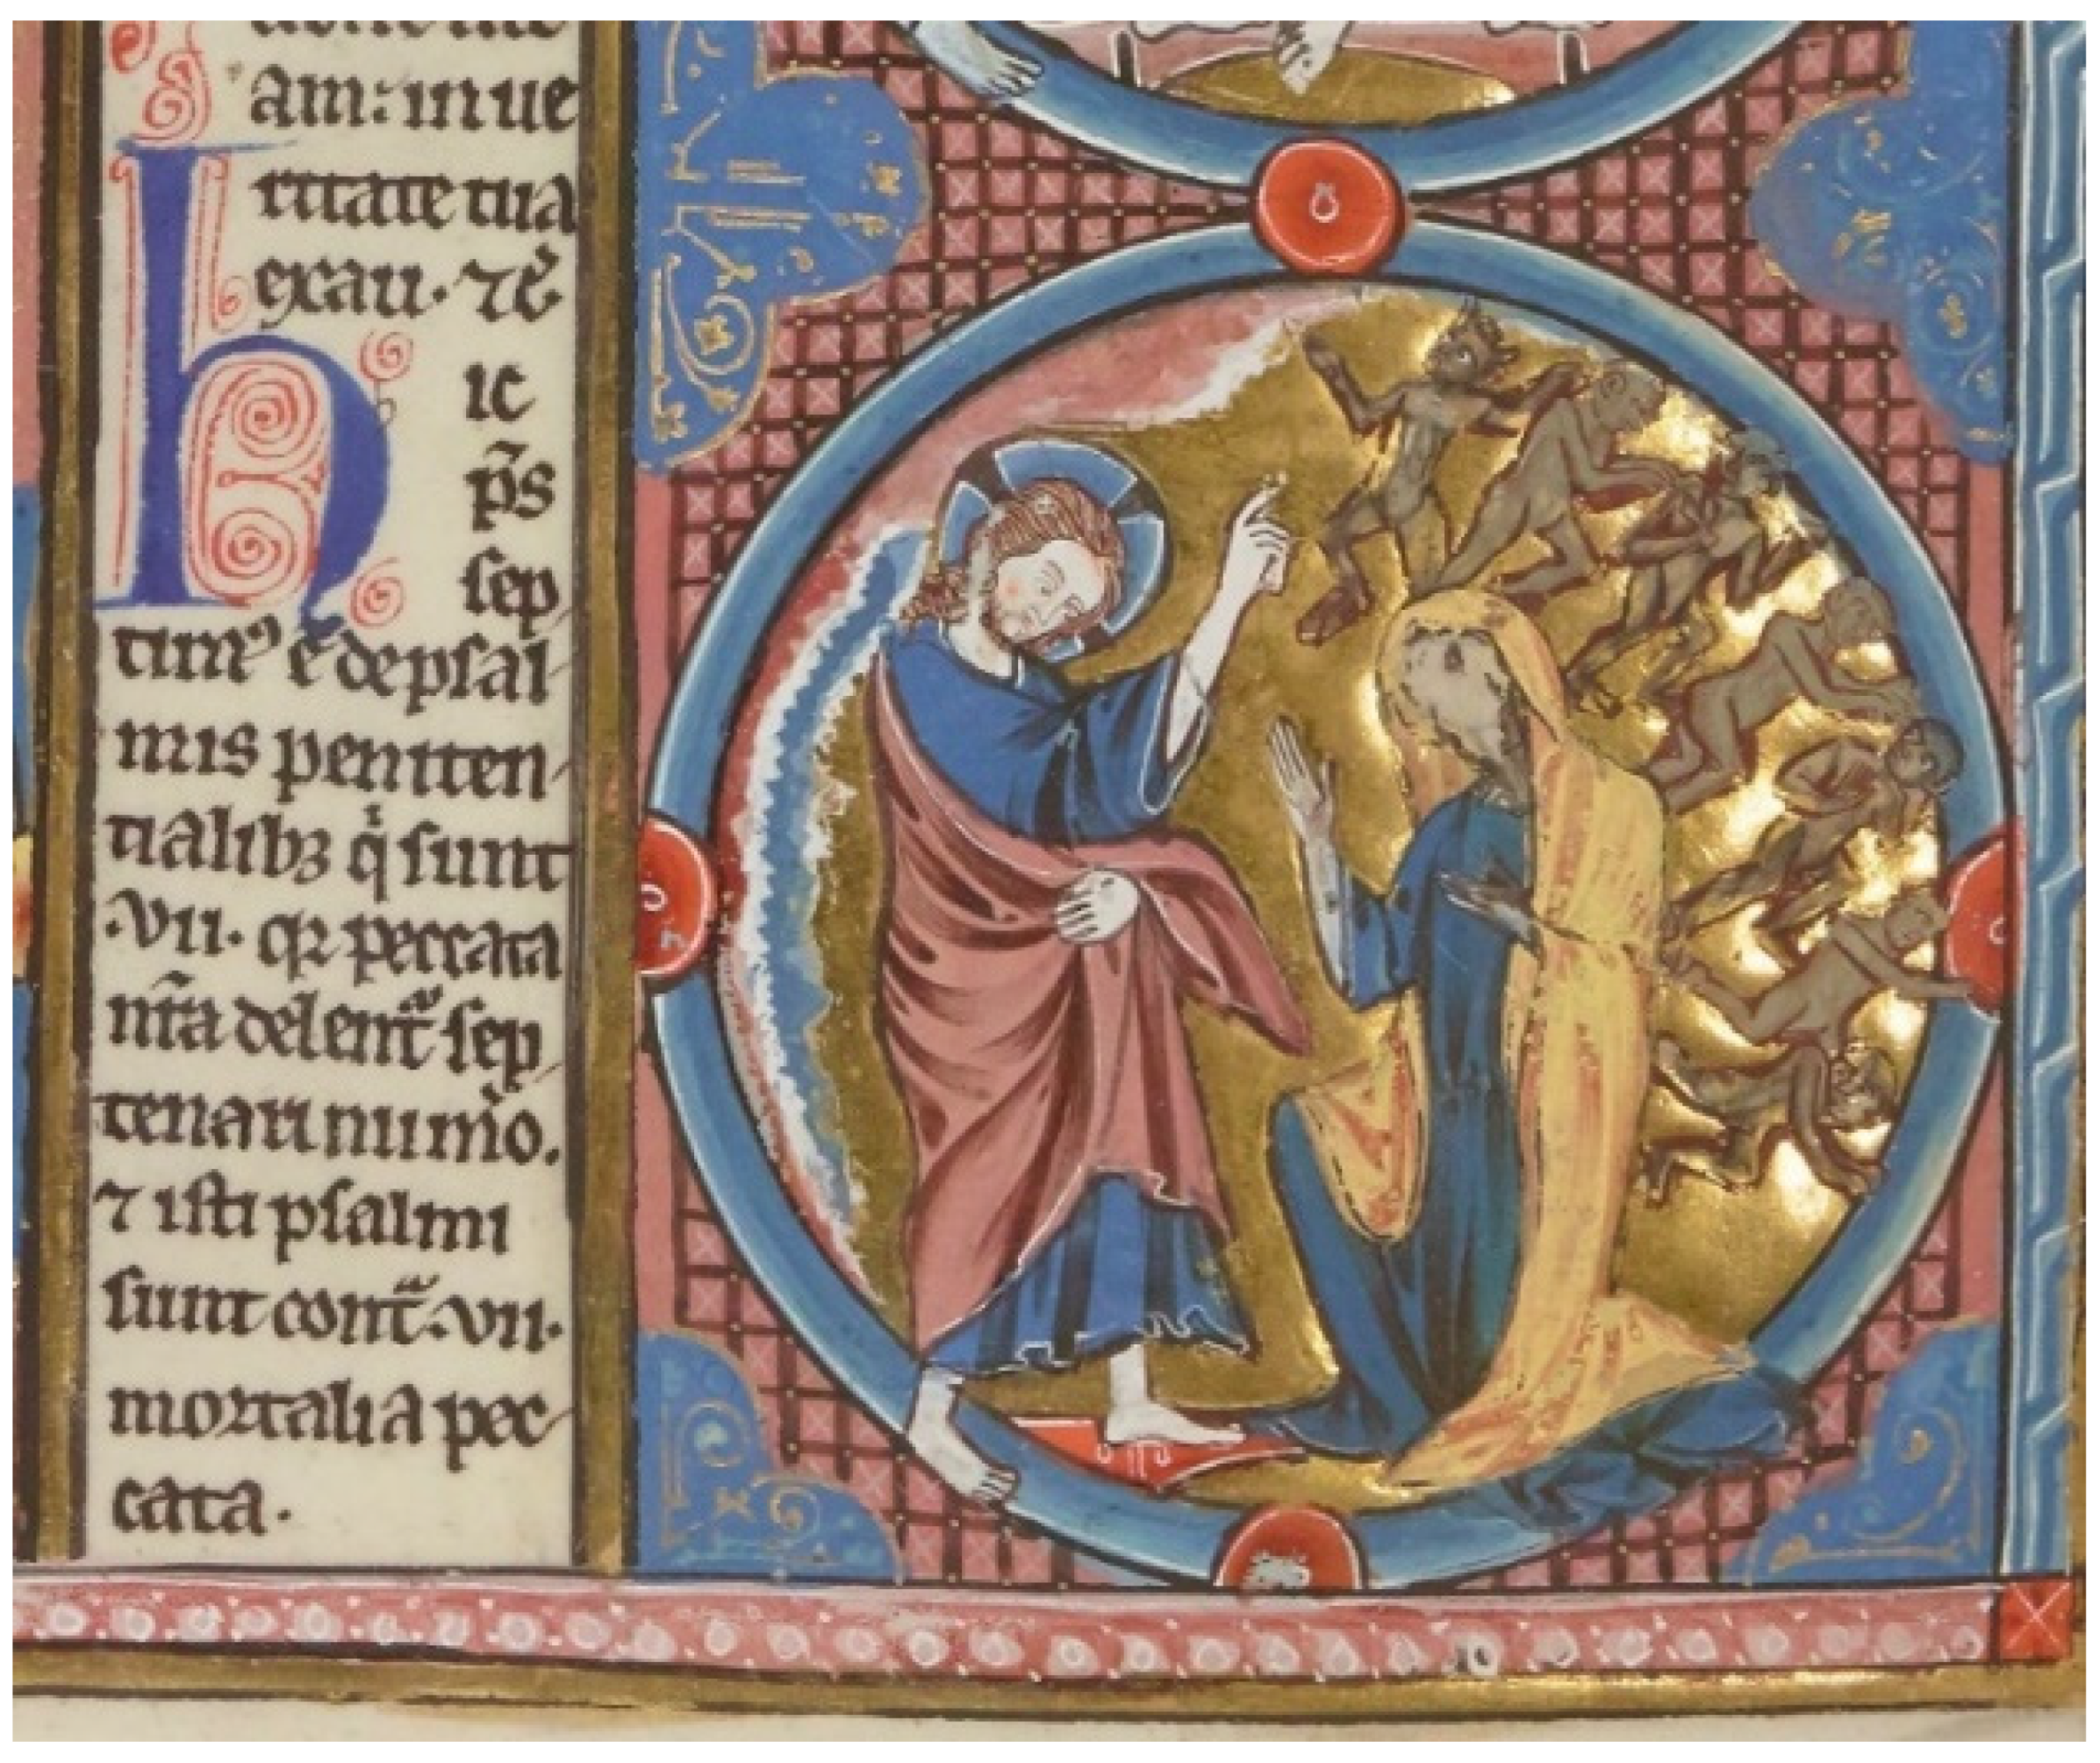 am: in ue
ritate tua
exau. ⁊c̃
Hic
p̃s
sep
timꝰ ẽ de psal
mis peniten
tialibꝫ q̇ sunt
.vii. qꝛ peccata
nr̃a delent᷑ sep
tenarii num̊o.
⁊ isti psalmi
sunt contᷓ .vii.
mortalia pec
cata.